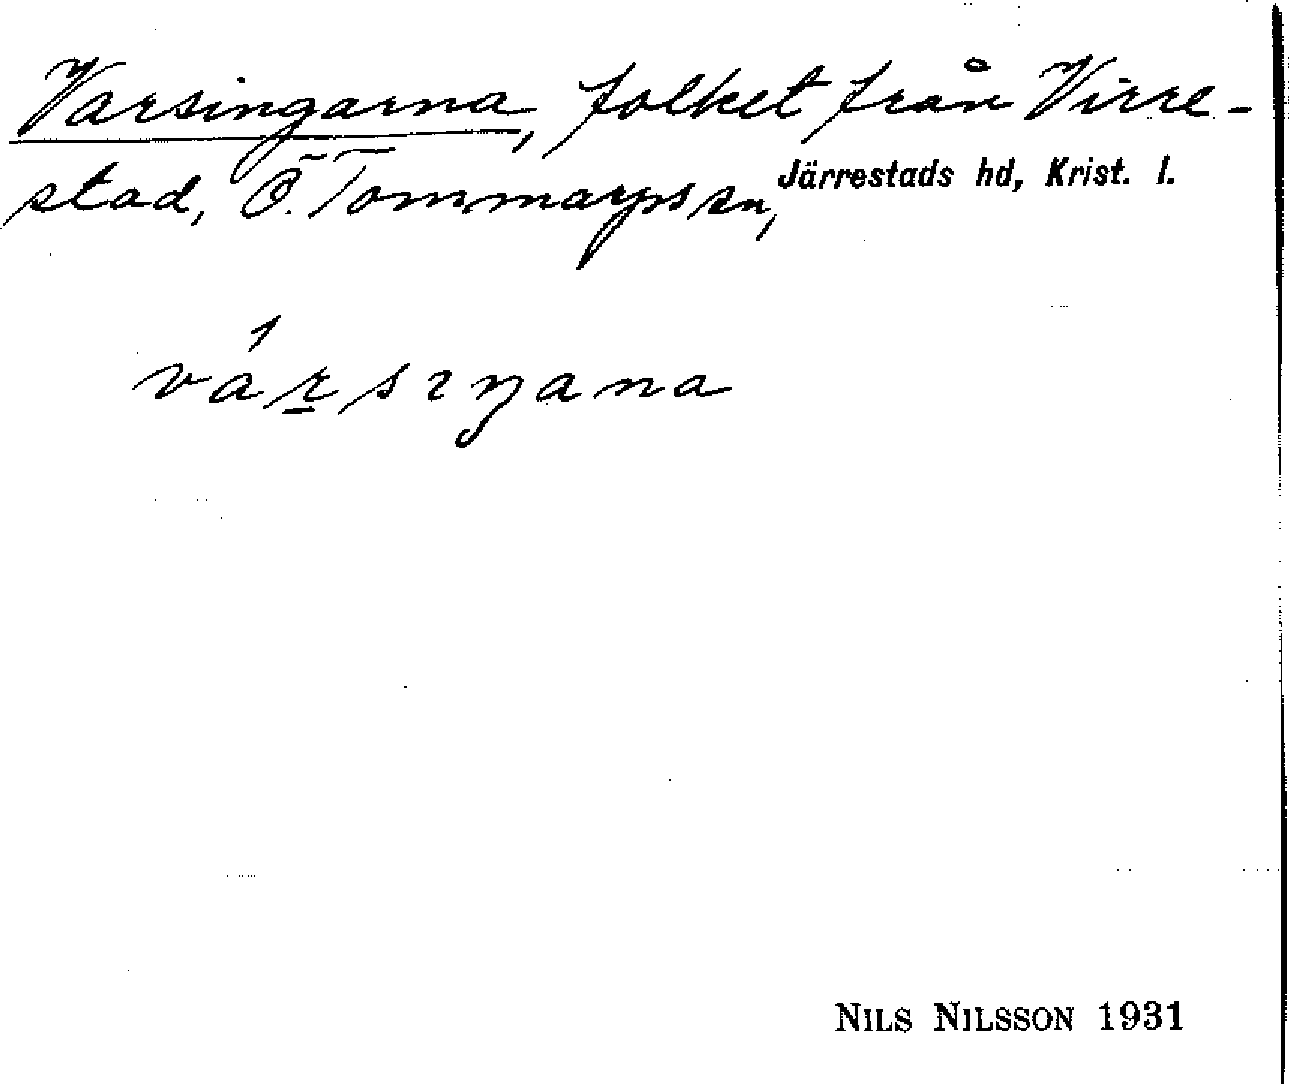 Varsingarna, folket från Virre-
stad, Ö. Tommarps sn, Järrestads hd, Krist. l.
vársıŋana
NILS NILSSON 1931